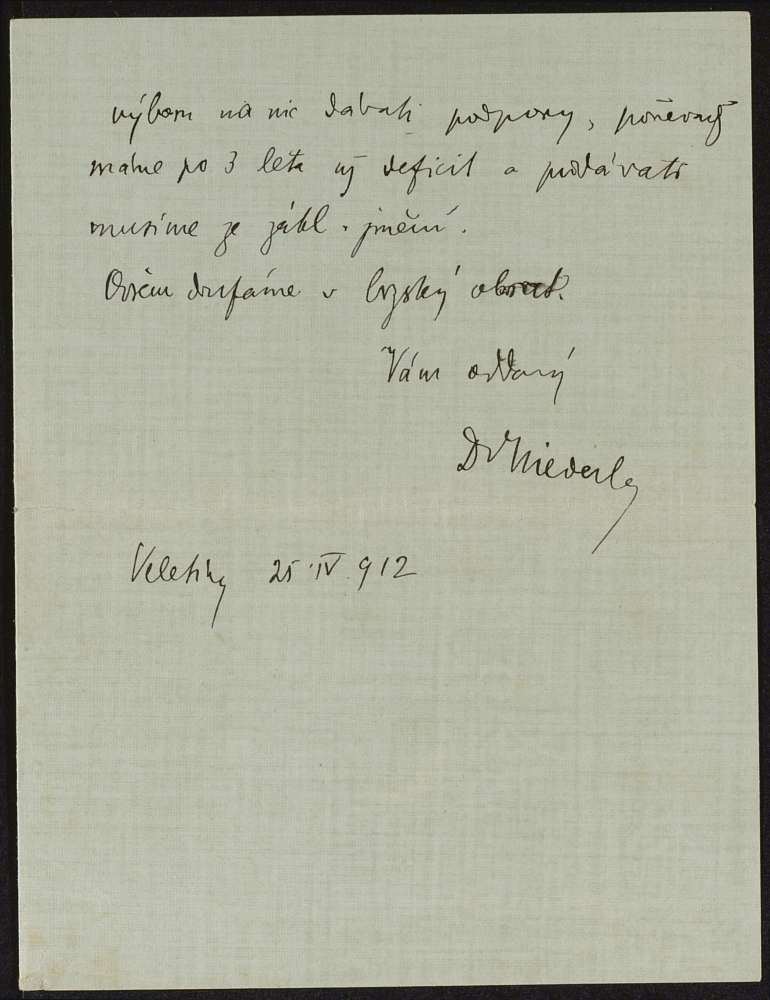 výboru na nic dávati podpory, poněvadž
máme po 3 léta již deficit a přidávati
musíme ze zákl. jmění.
Ovšem doufáme v brzský obrat.
Vám oddaný
Dr Niederle
Veletiny 25 IV 912